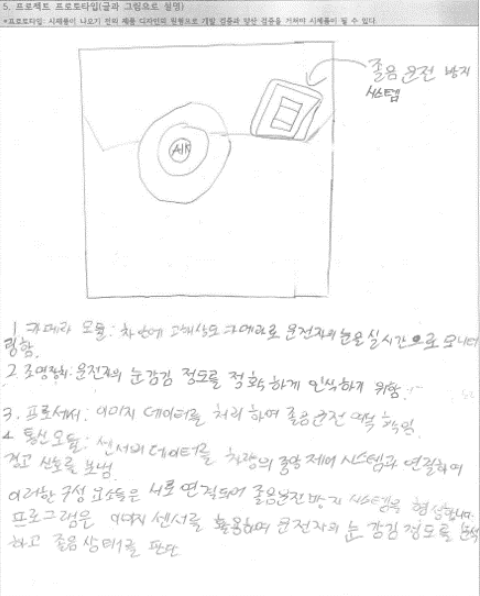 5. 프로젝트 프로토타입(글과 그림으로 설명)
*프로토타입: 시제품이 나오기 전의 제품 디자인의 원형으로 개발 검증과 양산 검증을 거쳐야 시제품이 될 수 있다.
졸음운전 방지
시스템
AIR
1. 카메라 모듈: 차 안에 고해상도 카메라로 운전자의 눈을 실시간으로 모니터
링함.
2. 조명장치: 운전자의 눈 감김 정도를 정확하게 인식하기 위함.
3. 프로세서: 이미지 데이터를 처리하여 졸음운전 여부 확인.
4. 통신모듈: 센서의 데이터를 차량의 중앙 제어 시스템과 연결하여
경고 신호를 보냄.
이러한 구성 요소들은 서로 연결되어 졸음운전 방지 시스템을 형성합니다.
프로그램은 이미지 센서를 활용하여 운전자의 눈 감김 정도를 분석
하고 졸음 상태를 판단